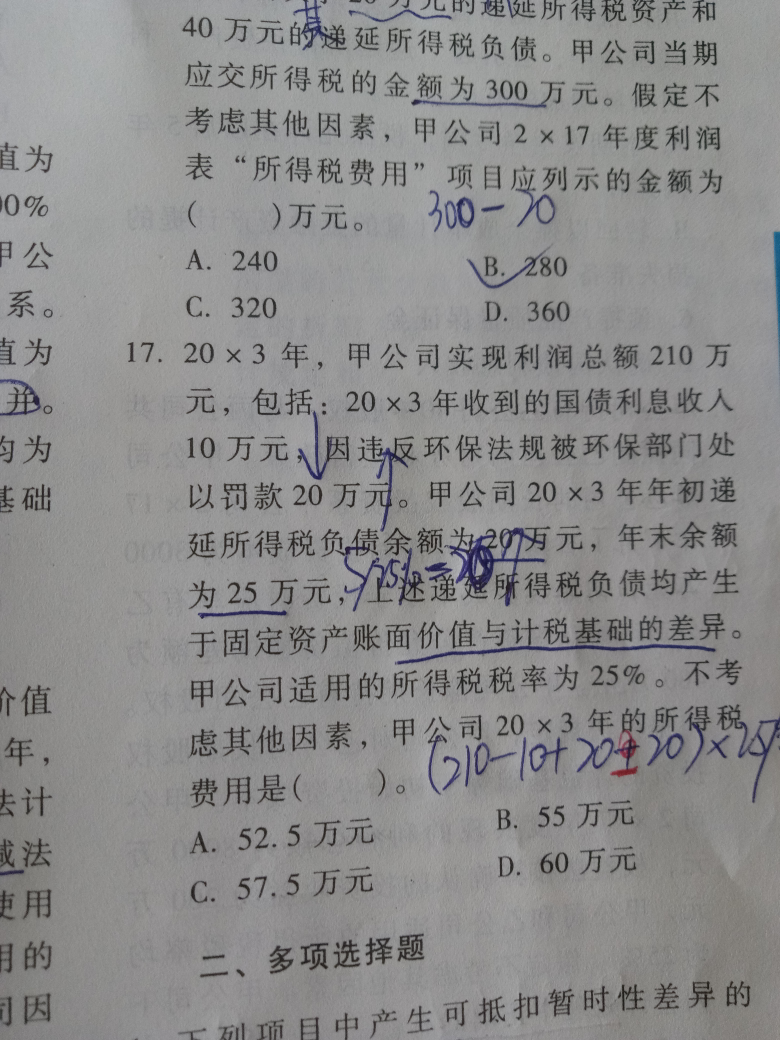 20 万元的递延所得税资产和
40 万元的递延所得税负债。甲公司当期
应交所得税的金额为 300 万元。假定不
考虑其他因素，甲公司 2 × 17 年度利润
表“所得税费用”项目应列示的金额为
(  )万元。 300-20
A. 240 B. 280
C. 320 D. 360
17. 20 × 3 年，甲公司实现利润总额 210 万
元，包括：20 × 3 年收到的国债利息收入
10 万元，因违反环保法规被环保部门处
以罚款 20 万元。甲公司 20 × 3 年年初递
延所得税负债余额为 20 万元，年末余额
5/25%=20
为 25 万元，上述递延所得税负债均产生
于固定资产账面价值与计税基础的差异。
甲公司适用的所得税税率为 25%。不考
虑其他因素，甲公司 20 × 3 年的所得税
(210-10+20±20)×25%
费用是(  )。
A. 52.5 万元 B. 55 万元
C. 57.5 万元 D. 60 万元
二、多项选择题
下列项目中产生可抵扣暂时性差异的
值为
00%
甲公
系。
值为
并。
均为
基础
价值
年，
法计
减法
使用
用的
司因